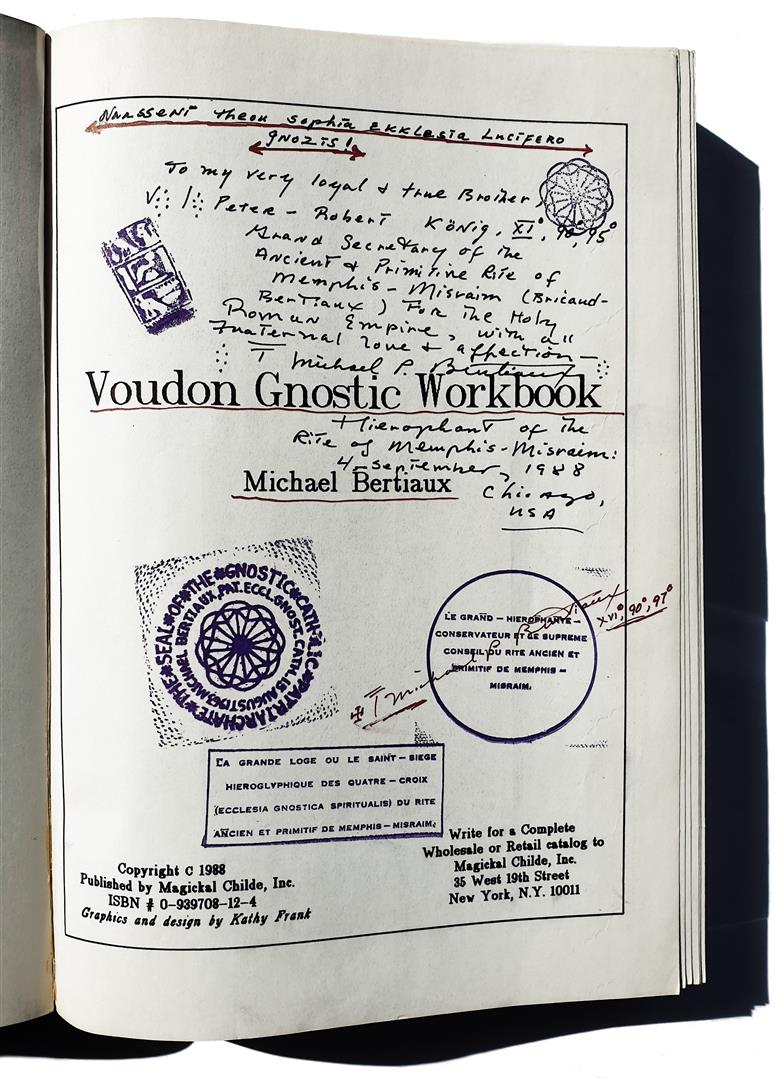 Naasseni theou sophia ekklesia Lucifero
gnozis!
To my very loyal & true Brother,
Peter-Robert König, XI°, 90°, 95°
Grand Secretary of the
Ancient & Primitive Rite of
Memphis-Misraim (Bricaud-
Bertiaux) for the Holy
Roman Empire, with all
fraternal love & affection—
T Michael P. Bertiaux
Voudon Gnostic Workbook
Hierophant of the
Rite of Memphis-Misraim:
4-september, 1988
Michael Bertiaux
Chicago,
USA
THE*SEAL*OF*THE*GNOSTIC*CATHOLIC*PATRIARCHATE*
MICHAEL BERTIAUX, PAT. ECCL. GNOST. CATH.
LE GRAND – HIEROPHANTE –
CONSERVATEUR ET CE SUPREME
CONSEIL DU RITE ANCIEN ET
PRIMITIF DE MEMPHIS –
MISRAIM.
T Michael P. Bertiaux
XVI°, 90°, 97°
LA GRANDE LOGE OU LE SAINT – SIEGE
HIEROGLYPHIQUE DES QUATRE – CROIX
(ECCLESIA GNOSTICA SPIRITUALIS) DU RITE
ANCIEN ET PRIMITIF DE MEMPHIS – MISRAIM.
Copyright C 1988
Published by Magickal Childe, Inc.
ISBN # 0-939708-12-4
Graphics and design by Kathy Frank
Write for a Complete
Wholesale or Retail catalog to
Magickal Childe, Inc.
35 West 19th Street
New York, N.Y. 10011